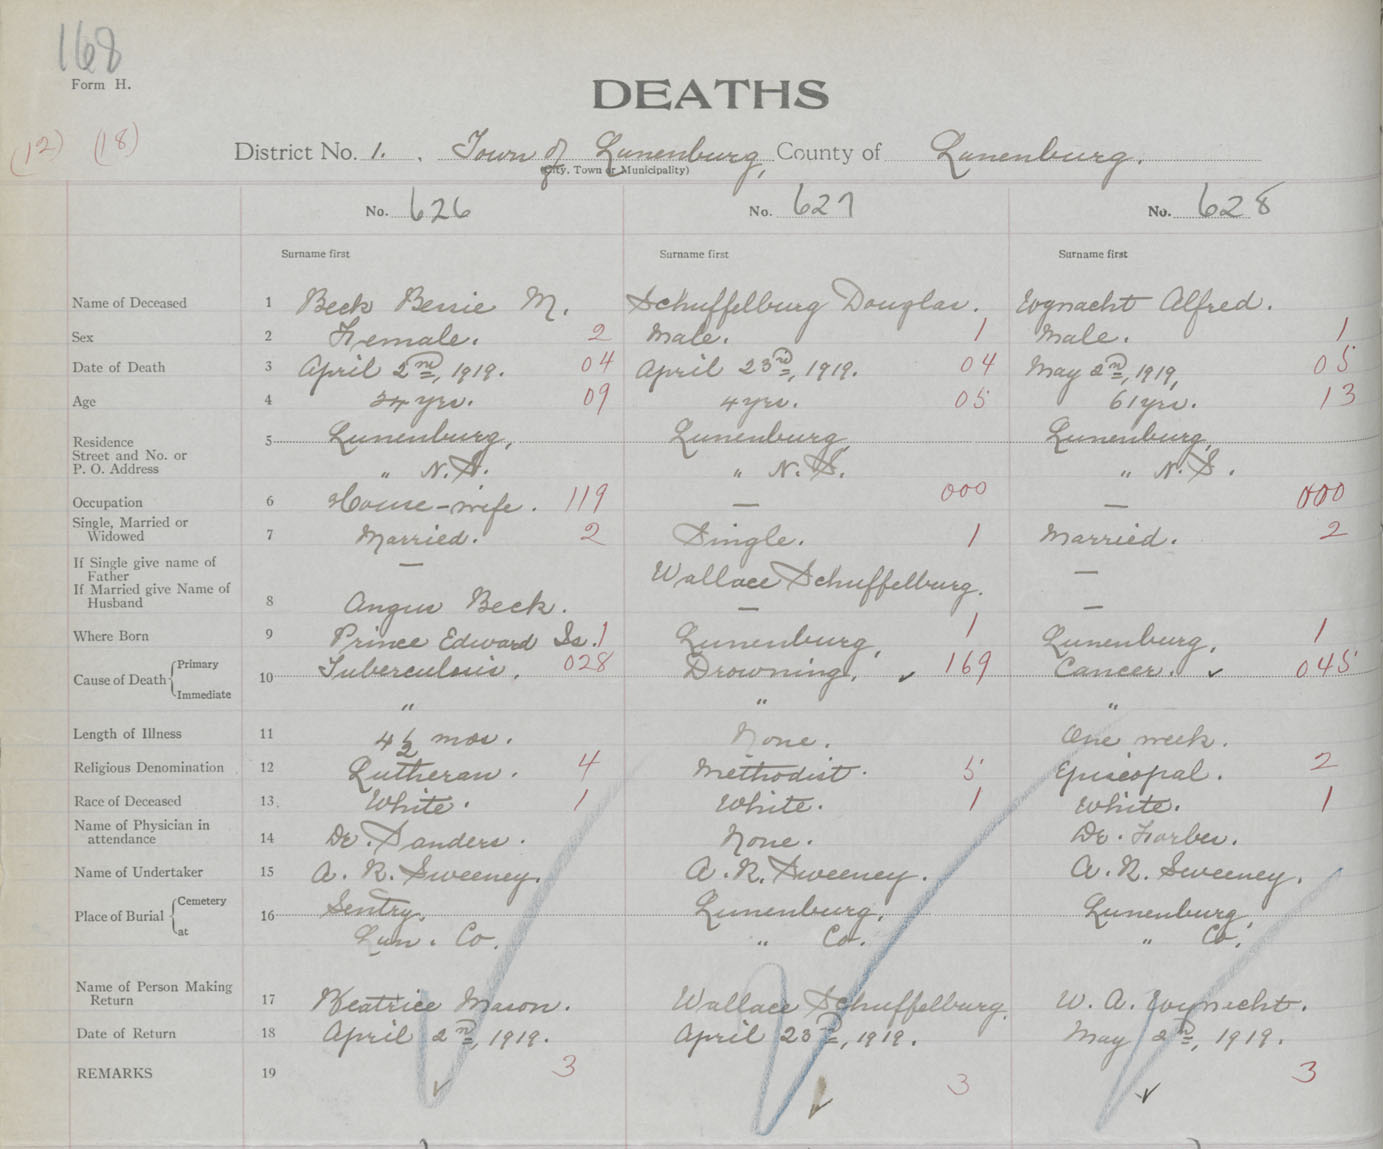 168
Form H.
DEATHS
(12) (18)
District No. 1. Town of Lunenburg, County of Lunenburg.
(City, Town or Municipality)
No. 626 No. 627 No. 628
Surname first Surname first Surname first
Name of Deceased 1 Beck Bessie M. Schuffelburg Douglas. Wynacht Alfred.
Sex 2 Female. 2 Male. 1 Male. 1
Date of Death 3 April 2nd, 1919. 04 April 23rd, 1919. 04 May 2nd, 1919, 05
Age 4 34 yrs. 09 4 yrs. 05 61 yrs. 13
Residence 5 Lunenburg, Lunenburg, Lunenburg,
Street and No. or
P. O. Address " N.S. " N.S. " N.S.
Occupation 6 House-wife. 119 — 000 — 000
Single, Married or
Widowed 7 Married. 2 Single. 1 Married. 2
If Single give name of
Father — Wallace Schuffelburg. —
If Married give Name of
Husband 8 Angus Beck. — —
Where Born 9 Prince Edward Is. 1 Lunenburg, 1 Lunenburg, 1
Cause of Death Primary 10 Tuberculosis. 028 Drowning. ✓ 169 Cancer. ✓ 045
Immediate " " "
Length of Illness 11 4½ mos. None. One week.
Religious Denomination 12 Lutheran. 4 Methodist. 5 Episcopal. 2
Race of Deceased 13. White. 1 White. 1 White. 1
Name of Physician in
attendance 14 Dr. Sanders. None. Dr. Forbes.
Name of Undertaker 15 A. R. Sweeney. A. R. Sweeney. A. R. Sweeney.
Place of Burial Cemetery 16 Sentry, Lunenburg, Lunenburg,
at Lun. Co. " Co. " Co.
Name of Person Making
Return 17 Beatrice Mason. Wallace Schuffelburg. W. A. Wynacht.
Date of Return 18 April 2nd, 1919. April 23rd, 1919. May 2nd, 1919.
REMARKS 19 3 3 3